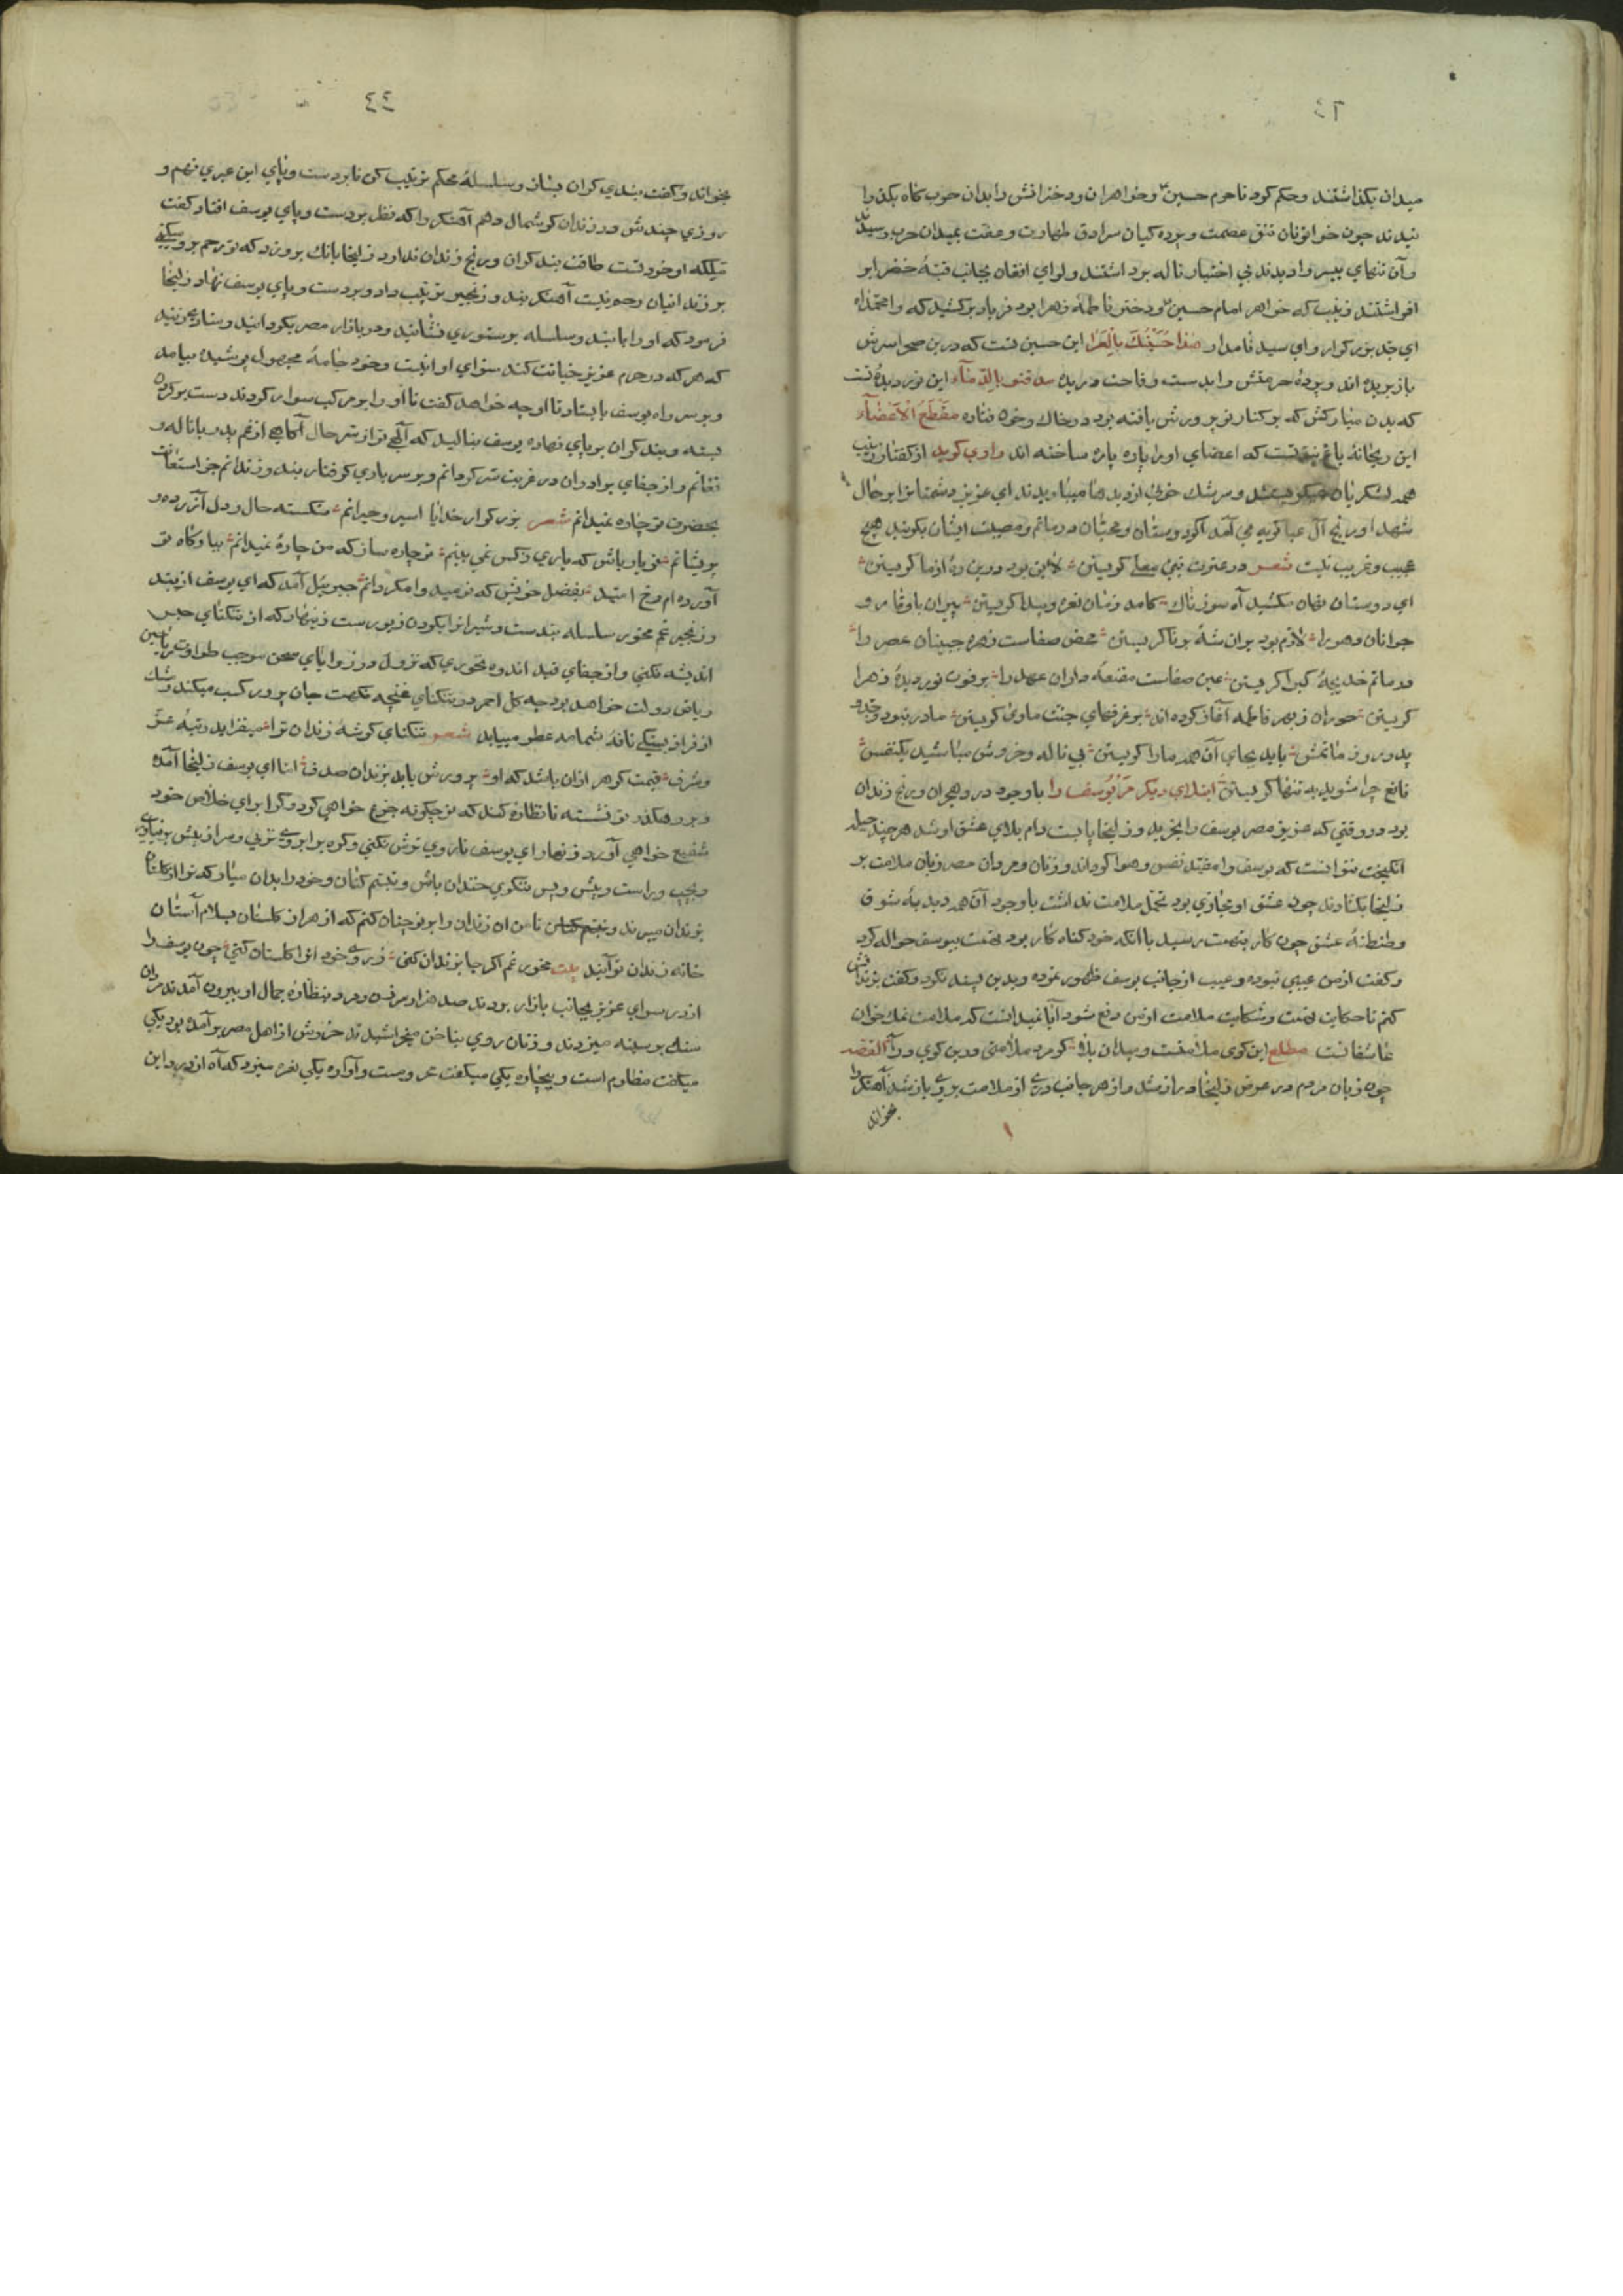 ٤٦
میدان بگذاشتند وحکم کرد تا حرم حسین و خواهران و دخترانش را بدان حرب کاه بگذرا
نیدند چون خواتونان تتق عصمت و پرده کیان سرادق طهارت و عفت بمیدان حرب رسیدند
وآن تنهای بیسر را دیدند بی اختیار ناله برداشتند ولوای افغان بجانب قبهٔ خضرا بر
افراشتند زینب که خواهر امام حسین و دختر فاطمه زهرا بود فریاد برکشید که وا محمداه
ای جد بزرکوار وای سید نامدار هذا حسینک بالعرا این حسین تست که درین صحرا سرش
باز بریده اند و پردهٔ حرمتش را بدست وقاحت دریده مدفنو بالدمآء این نور دیدهٔ تست
که بدن مبارکش که بر کنار تو پرورش یافته بود در خاک و خون فتاده مقطع الاعضآء
این ریحانهٔ باغ تست که اعضای او را پاره پاره ساخته اند راوی کوید از کفتار زینب
همه لشکریان میکریستند و سرشک خونی از دیدها میباریدند ای عزیز دشمنانرا بر حال
شهدا و رنج آل عبا کریه می آمد اکر دوستان و محبان در ماتم و مصیبت ایشان بکریند هیچ
عجیب وغریب نیست شعر در عترت نبی معلی کریستن لاین بود درین ره از ما کریستن
ای دوستان نهان مکشید آه سوزناک کامد زمان نعره و پیدا کریستن پیران باوقار و
جوانان دهر را لازم بود بران شهٔ برنا کریستن محض صفاست زهره جبینان عصر را
در ماتم خدیجهٔ کبرا کریستن عین صفاست مقنعه داران عهد را بر فوت نور دیدهٔ زهرا
کریستن حوران ز بهر فاطمه آغاز کرده اند بر غرفهای جنت ماوی کریستن مادر نبود وجد و
پدر روز ماتمش باید بجای آن همه ما را کریستن بی ناله و خروش مباشید یکنفس
قانع چرا شوید به تنها کریستن ابتلای دیکر مر یوسف را با وجود درد هجران و رنج زندان
بود در وقتی که عزیز مصر یوسف را بخرید و زلیخا پا بست دام بلای عشق او شد هر چند حیله
انکیخت نتوانست که یوسف را مقید نفس و هوا کرداند و زنان و مردان مصر زبان ملامت بر
زلیخا بکشادند چون عشق او مجازی بود تحمل ملامت نداشت با وجود آن همه دبدبهٔ شوق
و طنطنهٔ عشق چون کار بتهمت رسید با آنکه خود کناه کار بود تهمت بیوسف حواله کرد
و کفت از من عیبی نبوده و عیب از جانب یوسف ظهور نموده و بدین بسند نکرد و کفت بزندانش
کنم تا حکایت تهمت و شکایت ملامت از من دفع شود آیا نمیدانست که ملامت نمک خوان
عاشقانست مطلع این کوی ملامتست و میدان بلا کو مرد ملامتی درین کوی درآ القصه
چون زبان مردم در عرض زلیخا دراز شد و از هر جانب دری از ملامت بروی باز شد آهنکر را
بخواند
٤٤
بخواند و کفت بندی کران بساز و سلسلهٔ محکم ترتیب کن تا بر دست و پای این عبری نهم و
روزی چندش در زندان کوشمال دهم آهنکر را که نظر بر دست و پای یوسف افتاد کفت
ملکه او خود تست طاقت بند کران و رنج زندان ندارد زلیخا بانک بر وی زد که ترحم بر وی میکنی
بر زندانیان رحم نیست آهنکر بند و زنجیر ترتیب داد و بر دست و پای یوسف نهاد زلیخا
فرمود که او را با بند و سلسله بر ستوری نشانید و در بازار مصر بکردانید و منادی زنید
که هر که در حرم عزیز خیانت کند سزای او اینست و خود جامهٔ مجهول پوشیده بیامد
و بر سر راه یوسف بایستاد تا او چه خواهد کفت تا او را بر مرکب سوار کردند دست بر کردن
بسته و بند کران بر پای نهاده یوسف بنالید که الهی تو از سر حال آکاهی از غم پدر با ناله و
فغانم و از جفای برادران در غربت سرکردانم و بر سر بازی کرفتار بند و زندانم جز استعانت
بحضرت تو چاره نمیدانم شعر بزرکوار خدایا اسیر و حیرانم شکسته حال و دل آزرده و
پریشانم تو یار باش که یاری ز کس نمی بینم تو چاره ساز که من چارهٔ نمیدانم بیارکاه تو
آورده ام رخ امید بفضل خویش که نومید وا مکردانم جبرییل آمد که ای یوسف از بند
و زنجیر غم مخور سلسله بند ست و شیرانرا بکردن زیور ست زینهار که از تنکنای حبس
اندیشه نکنی و از جفای قید اندوه نخوری که نزول در زوایای سجن موجب طراوت ریاحین
ریاض دولت خواهد بود چه کل احمر در تنکنای غنچه نکهت جان پرور کسب میکند و مشک
اذفر از نافهٔ شمامه عطر مییابد شعر تنکنای کوشهٔ زندان ترا میفزاید رتبهٔ عز
و شرف قیمت کوهر ازان باشد که او پرورش یابد بزندان صدف اما ای یوسف زلیخا آمده
و بر رهکذر تو نشسته تا نظاره کند که تو چکونه جزع خواهی کرد و کرا برای خلاص خود
شفیع خواهی آورد زنهار ای یوسف تا روی ترش نکنی و کره بر ابروی نزنی و سر از پیش بر نیاری
و بچپ و راست و پیش و پس ننکری خندان باش و تبسم کنان و خود را بدان میار که ترا
بزندان میبرند تا من آن زندان را بر تو چنان کنم که از هزار کلستان بسلام آستان
خانه زندان تو آیند بیت مخور غم اکر جا بزندان کنی ز روی خود انرا کلستان کنی چون یوسف را
از در سرای عزیز بجانب بازار بردند صد هزار مرد و زن بنظارهٔ جمال او بیرون آمدند مردان
سنک بر سینه میزدند و زنان روی بناخن میخراشیدند خروش از اهل مصر بر آمده بود یکی
میکفت مظلوم است و بیچاره یکی میکفت غریبست و آواره یکی نعره میزد که آه از درد این